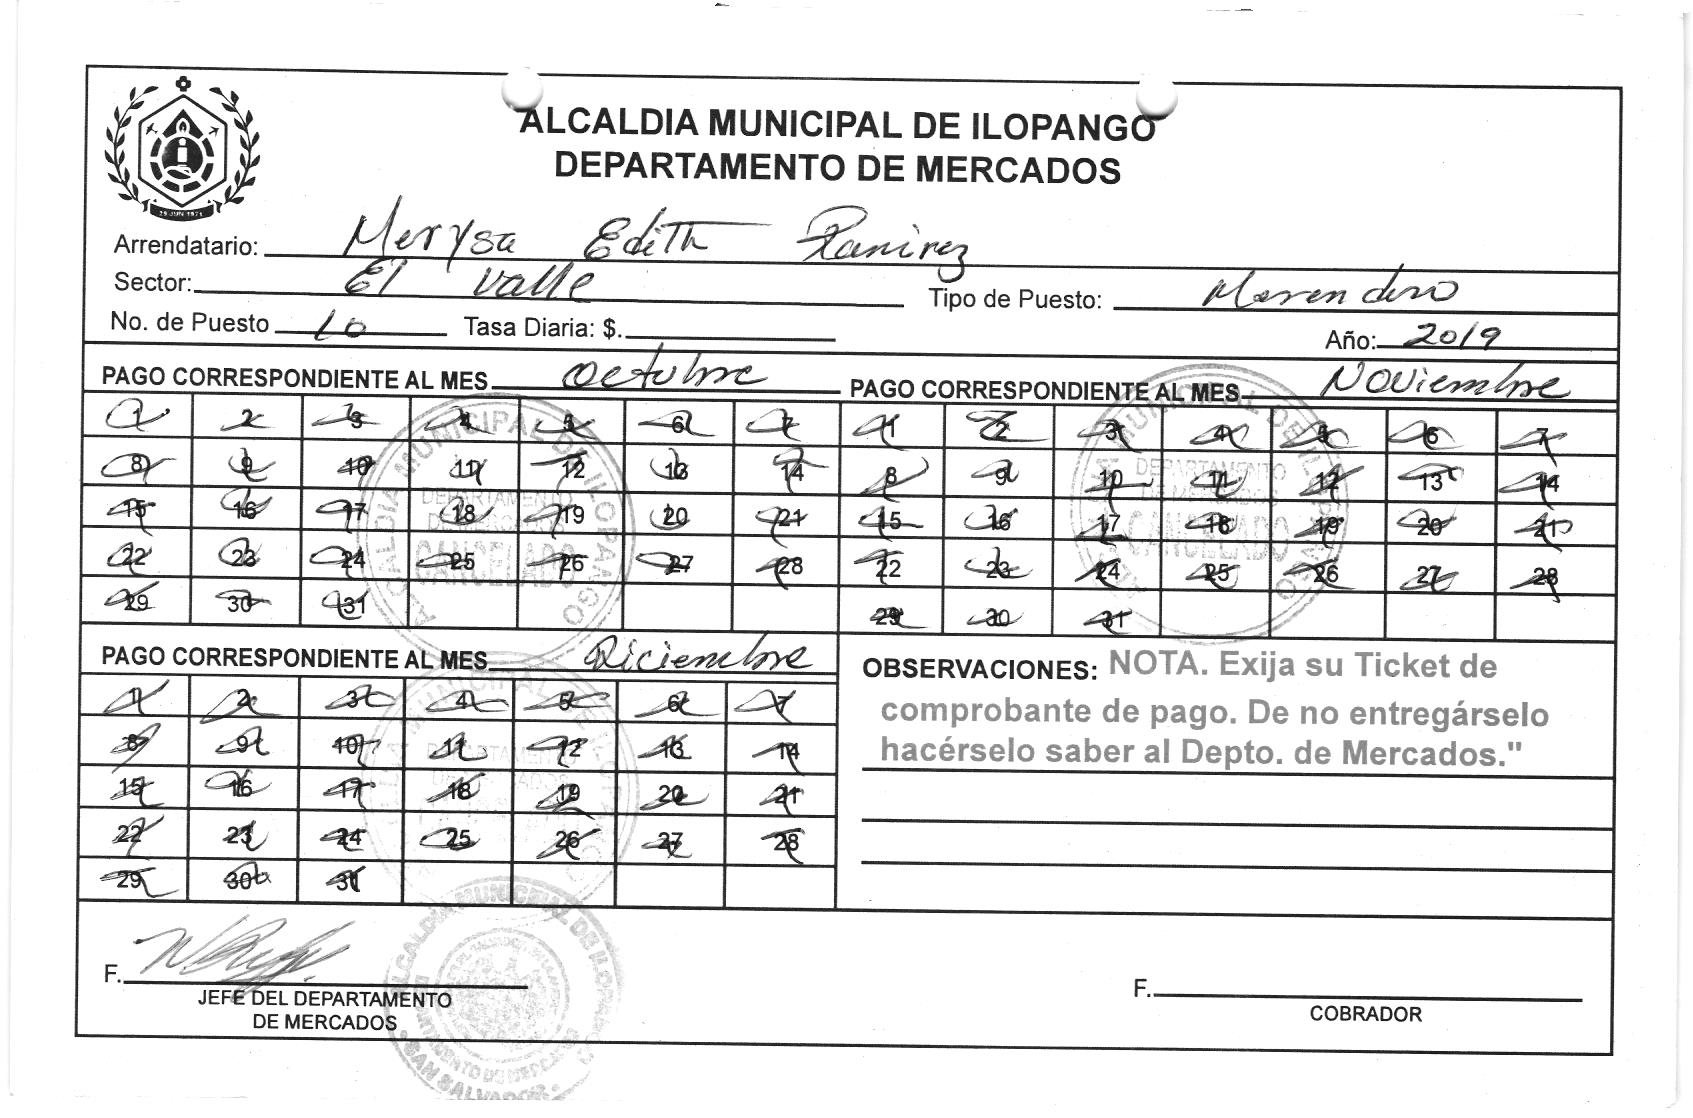 ALCALDIA MUNICIPAL DE ILOPANGO
DEPARTAMENTO DE MERCADOS
15 JUN 1971
Arrendatario: Merysa Edith Ramirez
Sector: El Valle Tipo de Puesto: Merendero
No. de Puesto 10 Tasa Diaria: $. Año: 2019
PAGO CORRESPONDIENTE AL MES Octubre
1 2 3 4 5 6 7
8 9 10 11 12 13 14
15 16 17 18 19 20 21
22 23 24 25 26 27 28
29 30 31
ALCALDIA MUNICIPAL DE ILOPANGO
DEPARTAMENTO
DE MERCADOS
CANCELADO
PAGO CORRESPONDIENTE AL MES Noviembre
1 2 3 4 5 6 7
8 9 10 11 12 13 14
15 16 17 18 19 20 21
22 23 24 25 26 27 28
29 30 31
MUNICIPAL DE ILOPANGO
DEPARTAMENTO
DE MERCADOS
CANCELADO
PAGO CORRESPONDIENTE AL MES Diciembre
1 2 3 4 5 6 7
8 9 10 11 12 13 14
15 16 17 18 19 20 21
22 23 24 25 26 27 28
29 30 31
OBSERVACIONES: NOTA. Exija su Ticket de
comprobante de pago. De no entregárselo
hacérselo saber al Depto. de Mercados."
F.
JEFE DEL DEPARTAMENTO
DE MERCADOS
ALCALDÍA MUNICIPAL DE ILOPANGO
DEPARTAMENTO DE MERCADOS
SAN SALVADOR
F.
COBRADOR